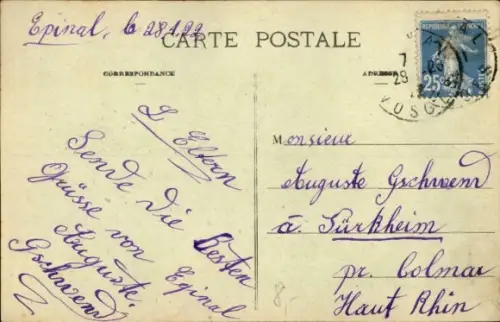 Epinal, le 28.1.22
CARTE POSTALE
CORRESPONDANCE
ADRESSE
L Eltern
Sende Die Besten
Grüsse von Epinal
Auguste
Gschwend
Monsieur
Auguste Gschwend
à Türkheim
pr. Colmar
Haut Rhin
25
VOSGES
8.-